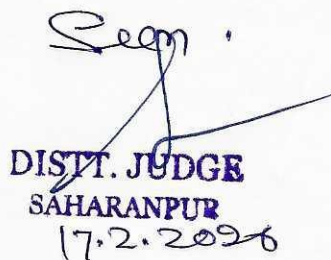 Seen.
DISTT. JUDGE
SAHARANPUR
17.2.2026